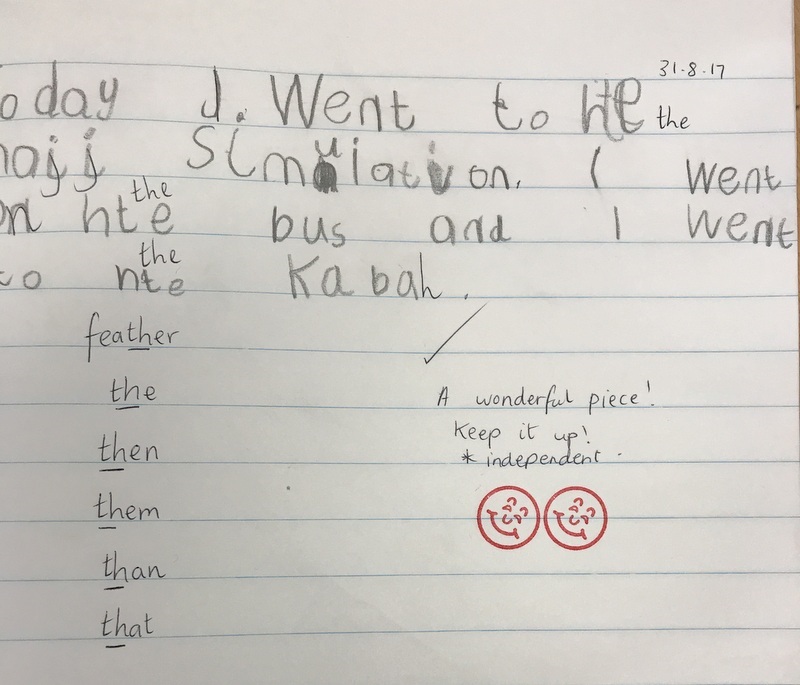 31.8.17
oday I. Went to hte the
hajj Simulation. I went
the
on hte bus and I went
the
to hte Kabah.
feather
the
then
them
than
that
A wonderful piece!
Keep it up!
* independent.